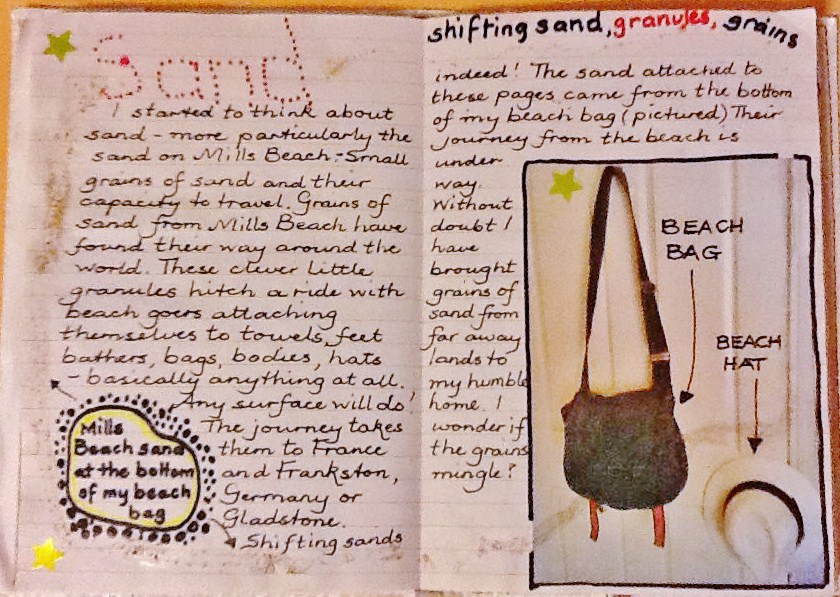 Sand
I started to think about
sand - more particularly the
sand on Mills Beach - Small
grains of sand and their
capacity to travel. Grains of
sand from Mills Beach have
found their way around the
world. These clever little
granules hitch a ride with
beach goers attaching
themselves to towels, feet
bathers, bags, bodies, hats
- basically anything at all.
Any surface will do!
The journey takes
them to France
and Frankston,
Germany or
Gladstone.
Shifting sands
Mills
Beach sand
at the bottom
of my beach
bag
shifting sand, granules, grains
indeed! The sand attached to
these pages came from the bottom
of my beach bag (pictured) Their
journey from the beach is
under
way.
Without
doubt I
have
brought
grains of
sand from
far away
lands to
my humble
home. I
wonder if
the grains
mingle?
BEACH
BAG
BEACH
HAT